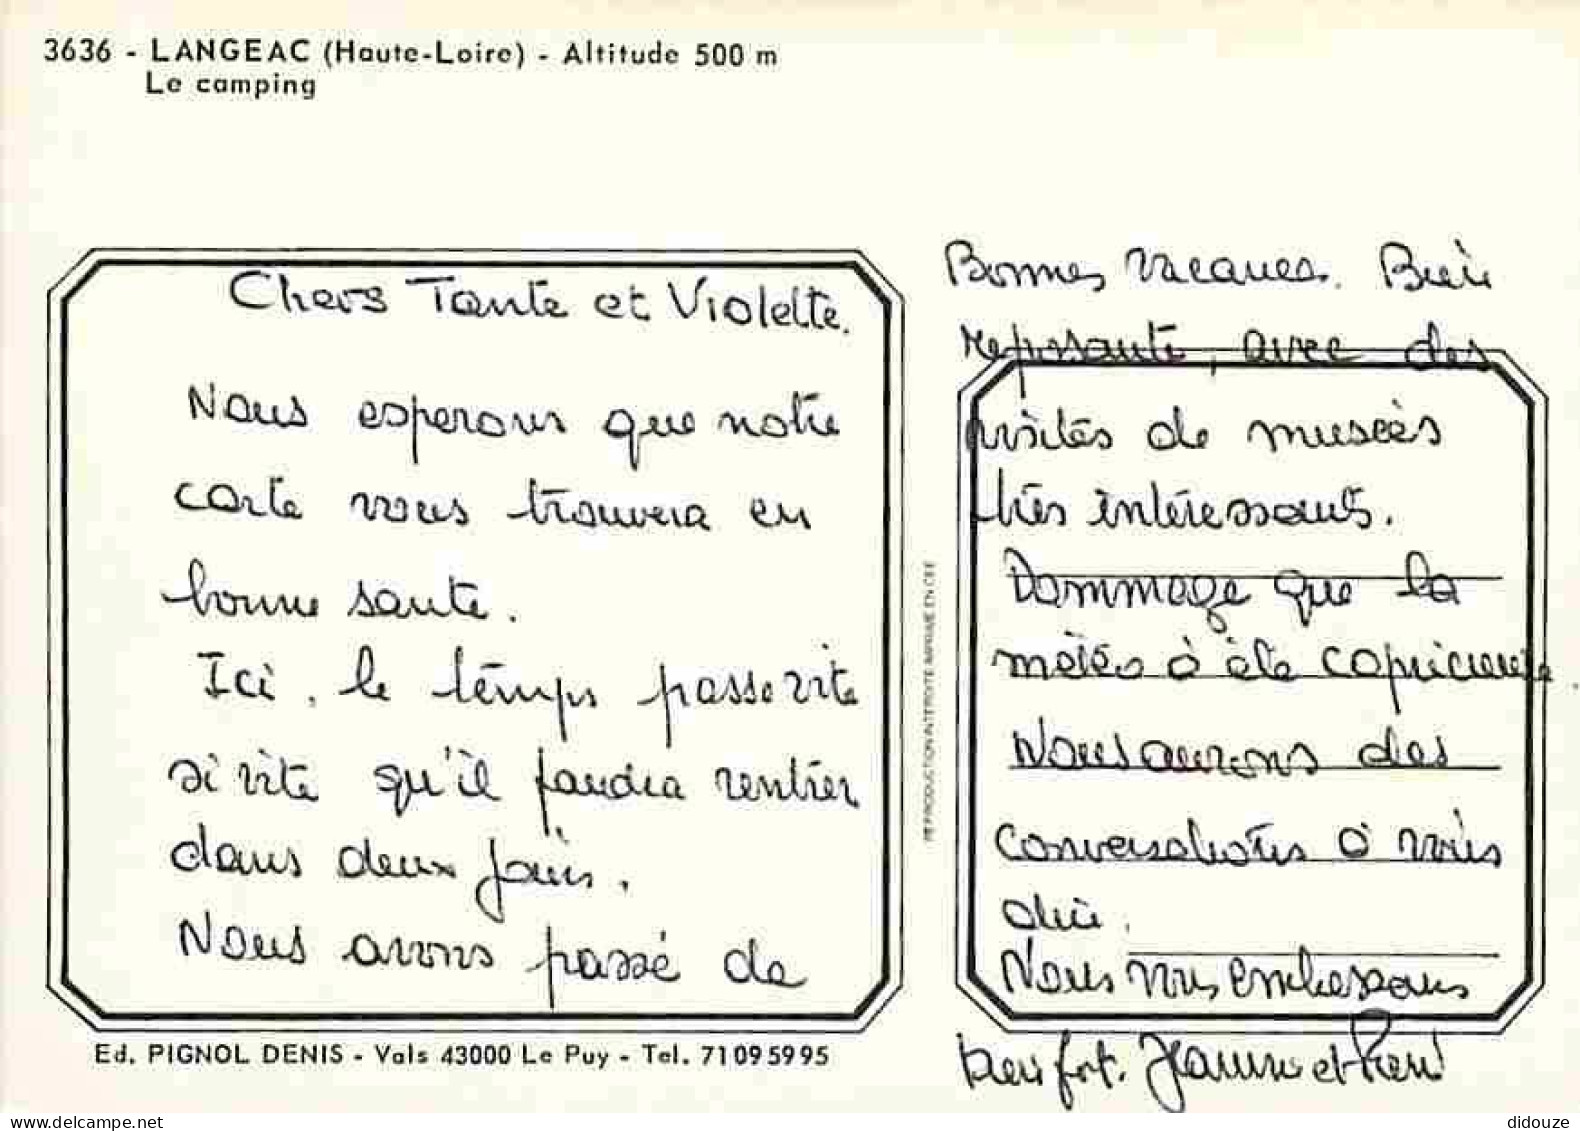 3636 - LANGEAC (Haute-Loire) - Altitude 500 m
Le camping
Chers Tante et Violette.
Nous esperons que notre
carte vous trouvera en
bonne santé.
Ici, le temps passe vite
si vite qu'il faudra rentrer
dans deux jours.
Nous avons passé de
Bonnes vacances. Bien
reposante, avec des
visites de musées
très intéressants.
Dommage que la
météo à été capricieuse.
Nous aurons des
conversations à vous
dire.
Nous vous embrassons
bien fort. Jeanne et René
REPRODUCTION INTERDITE IMPRIMÉ EN CEE
Ed. PIGNOL DENIS - Vals 43000 Le Puy - Tel. 71095995
didouze
delcampe.net